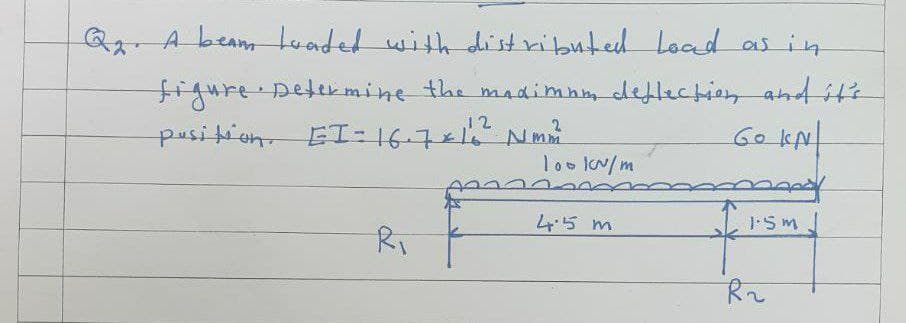 Q2. A beam loaded with distributed Load as in
figure. Determine the maximum deflection and it's
position. EI = 16.7 x 10^12 N mm^2
60 KN
100 KN/m
4.5 m
1.5 m
R1
R2